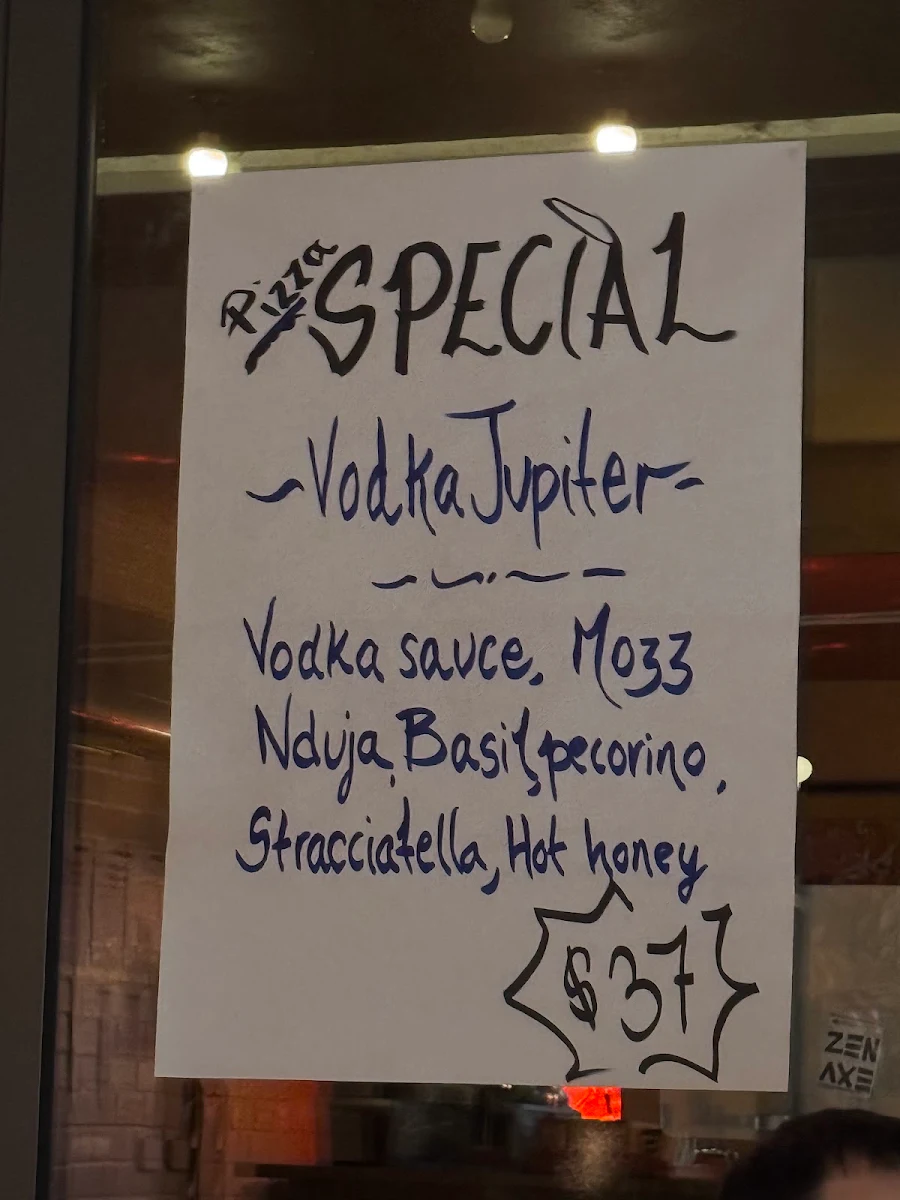 Pizza SPECIAL
~Vodka Jupiter-
Vodka sauce, Mozz
Nduja, Basil, pecorino,
Stracciatella, Hot honey
$37
ZEN
AXE